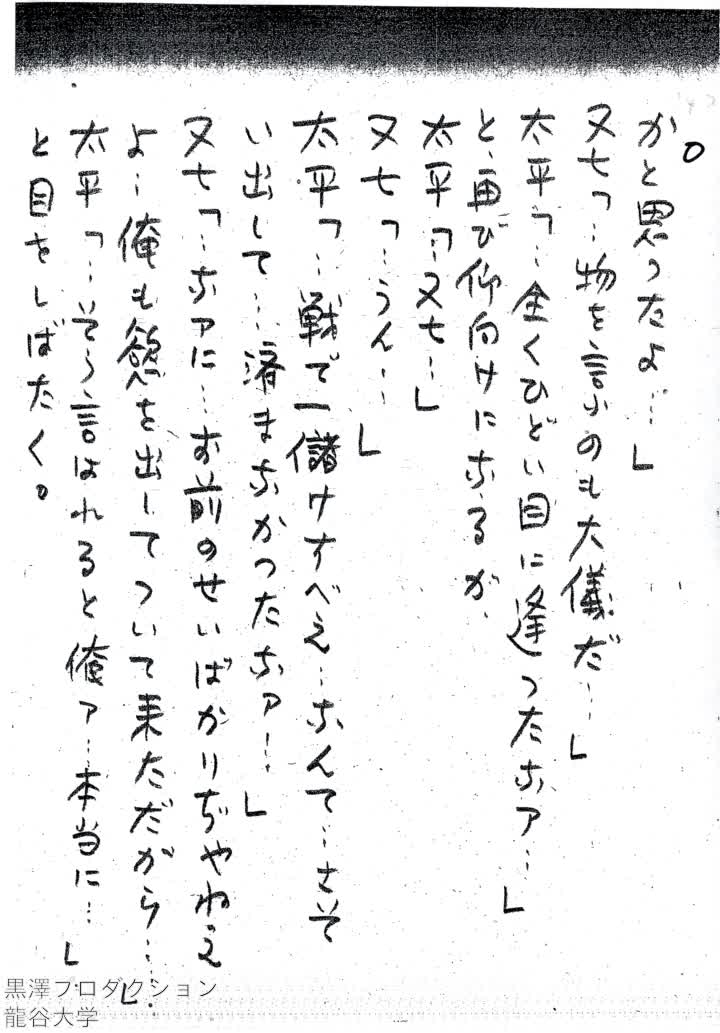 かと思つたよ…」
又七「…物を言ふのも大儀だ…」
太平「…全くひどい目に逢つたなア…」
と、再び仰向けになるが、
太平「…又七…」
又七「…うん…」
太平「…戦で一儲けすべえ…なんて…さそ
い出して…済まなかつたなア…」
又七「…なアに…お前のせいばかりぢやねえ
よ…俺も慾を出してついて来ただから…」
太平「…そう言はれると俺ア…本当に…」
と目をしばたく。
黒澤プロダクション
龍谷大学